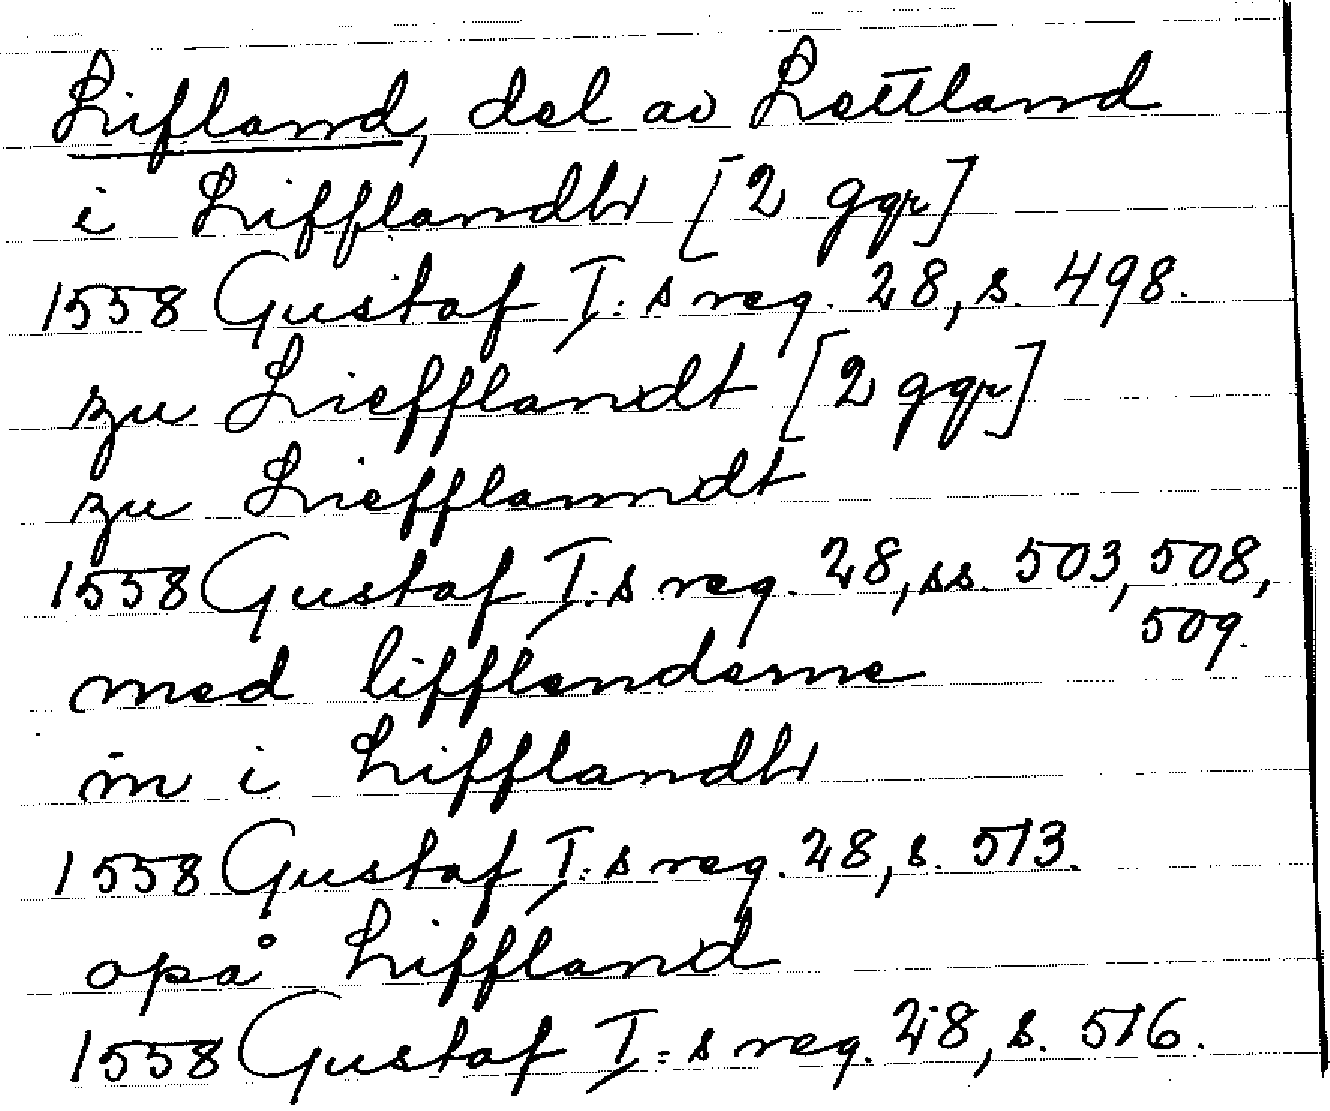 Lifland, del av Lettland
i Lifflandh [2 ggr]
1558 Gustaf I:s reg. 28, s. 498.
zu Liefflandt [2 ggr]
zu Liefflanndt
1558 Gustaf I:s reg. 28, ss. 503, 508,
509.
med lifflenderne
in i Lifflandh
1558 Gustaf I:s reg. 28, s. 513.
opå Liffland
1558 Gustaf I:s reg. 28, s. 516.